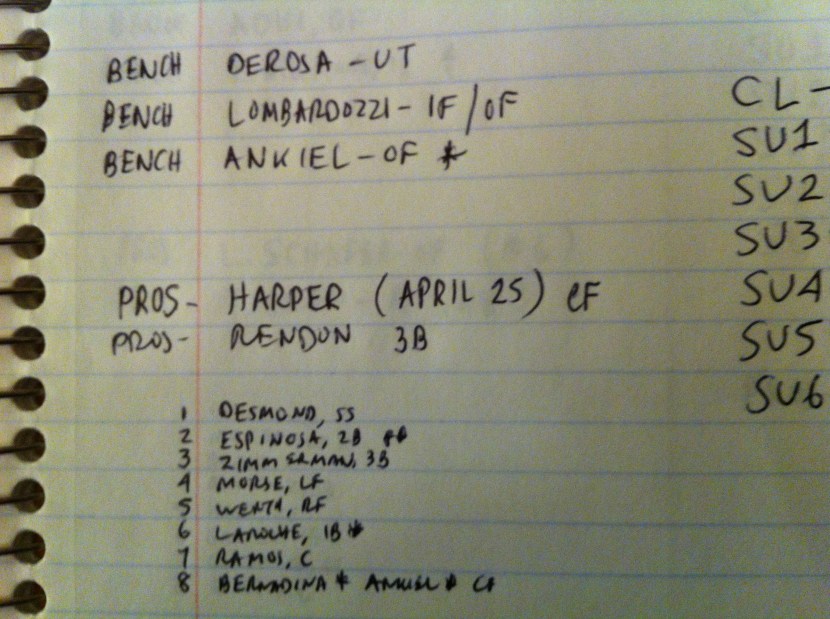 BENCH DEROSA - UT
BENCH LOMBARDOZZI - IF/OF
BENCH ANKIEL - OF *
PROS - HARPER (APRIL 25) CF
PROS - RENDON 3B
1 DESMOND, SS
2 ESPINOSA, 2B
3 ZIMMERMAN, 3B
4 MORSE, LF
5 WERTH, RF
6 LAROCHE, 1B *
7 RAMOS, C
8 BERNADINA * ANKIEL * CF
CL -
SU1
SU2
SU3
SU4
SU5
SU6